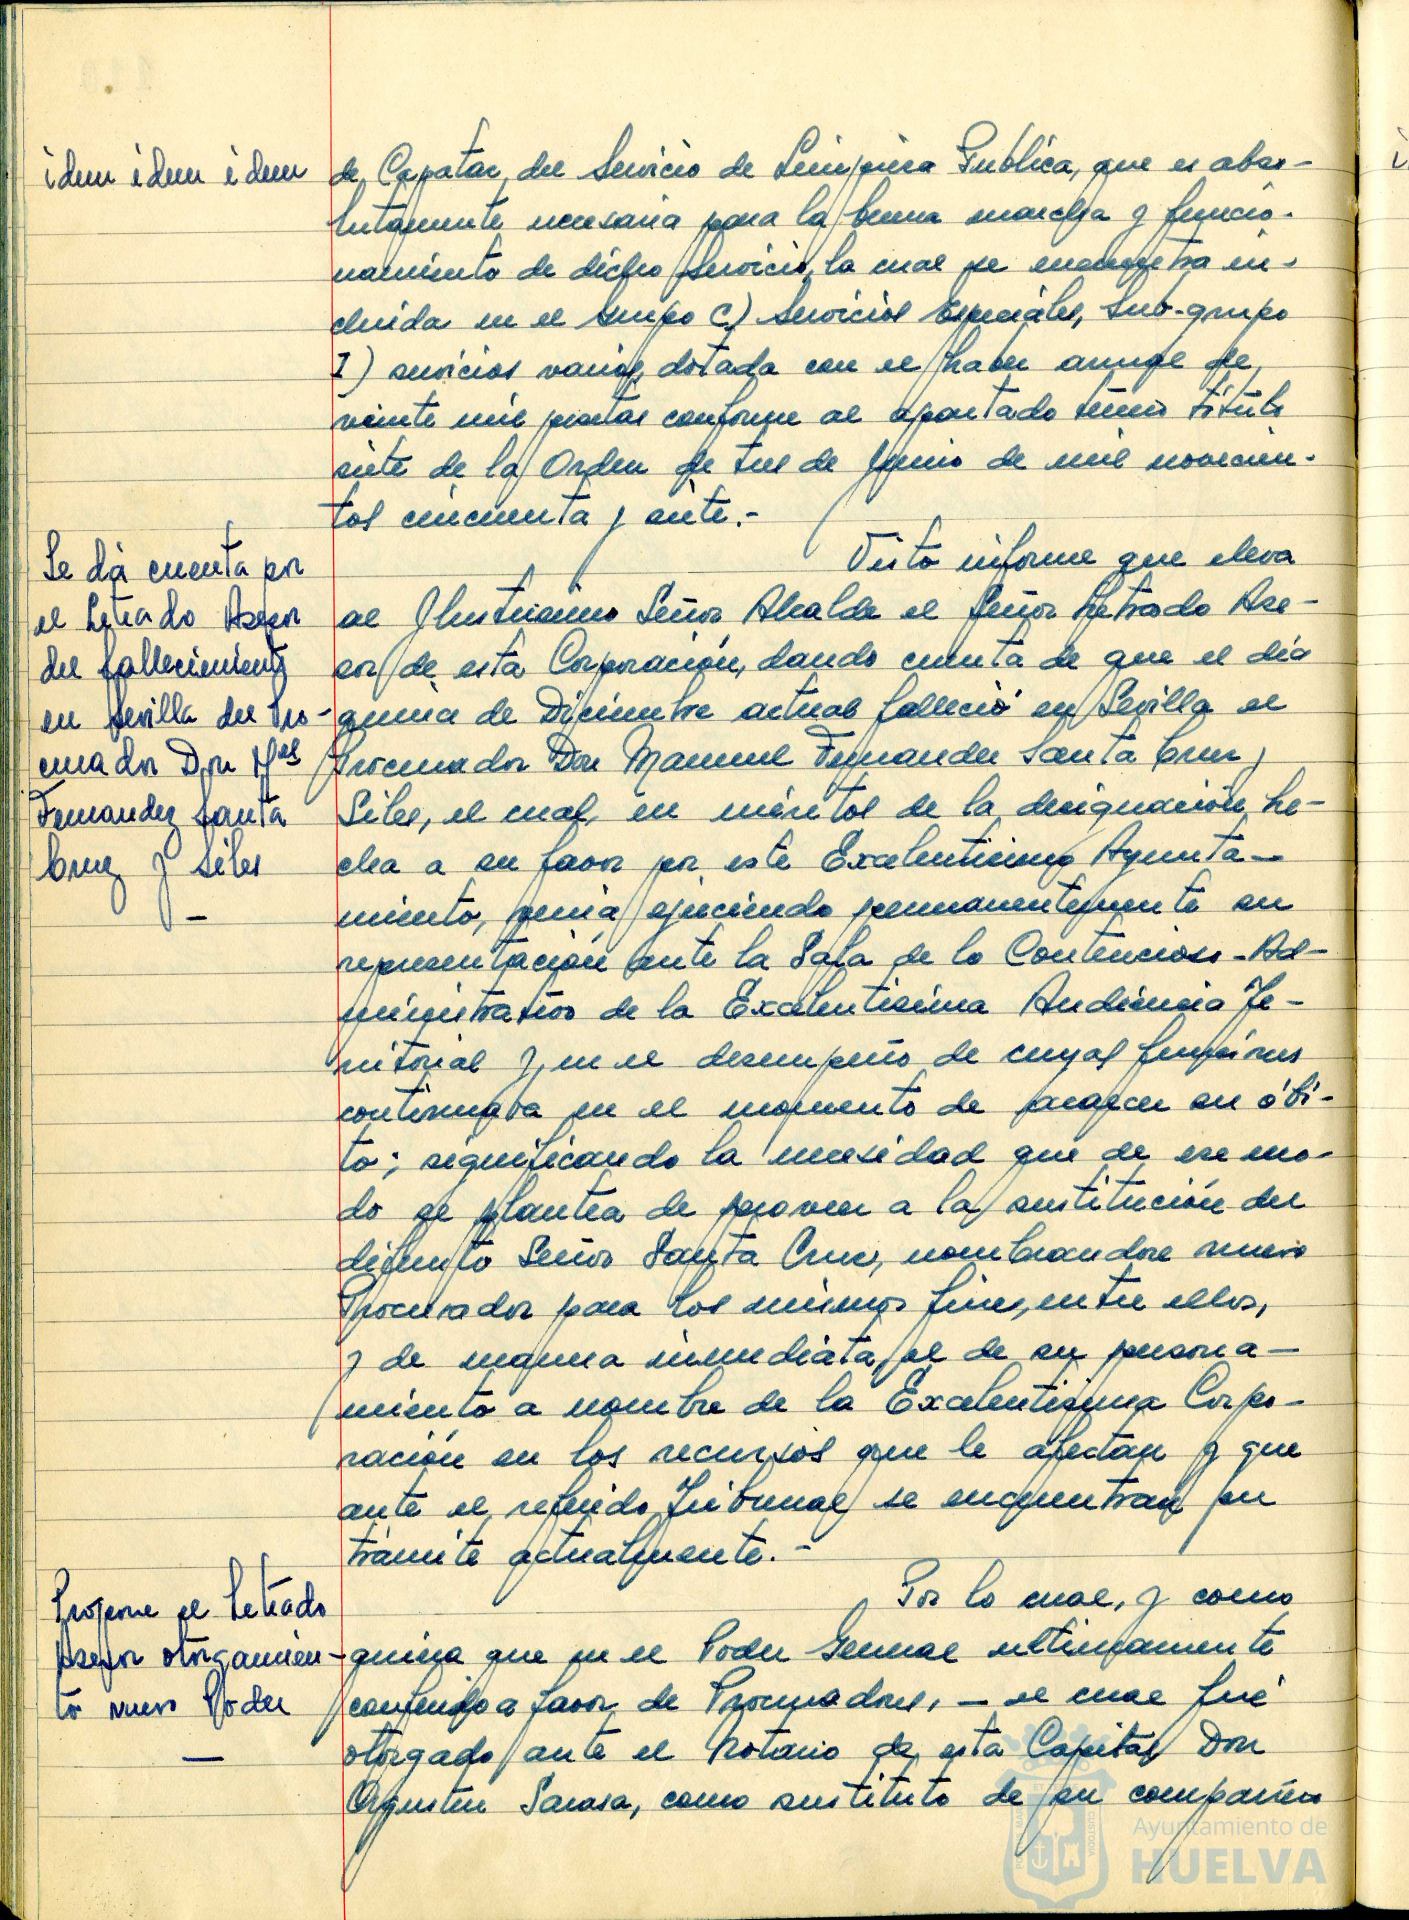 idem idem idem
de Capataz del Servicio de Limpieza Publica, que es abso-
lutamente necesaria para la buena marcha y funcio-
namiento de dicho servicio, la cual se encuentra in-
cluida en el Grupo C) Servicios Especiales, Sub-grupo
I) servicios varios, dotada con el haber anual de
veinte mil pesetas conforme al apartado
siete de la Orden de tres de Junio de mil novecien-
tos cincuenta y siete.-
Se dá cuenta por
el Letrado Asesor
del fallecimiento
en Sevilla del Pro-
curador Don Mel
Fernandez Santa
Cruz y Siles
—
Visto informe que eleva
al Ilustrisimo Señor Alcalde el Señor Letrado Ase-
sor de esta Corporación, dando cuenta de que el día
quince de Diciembre actual falleció en Sevilla el
Procurador Don Manuel Fernandez Santa Cruz y
Siles, el cual, en méritos de la designación he-
cha a su favor por este Excelentisimo Ayunta-
miento, venia ejerciendo permanentemente su
representación ante la Sala de lo Contencioso-Ad-
ministrativo de la Excelentisima Audiencia Te-
rritorial y, en el desempeño de cuyas funciones
continuaba en el momento de acaecer su óbi-
to; significando la necesidad que de ese mo-
do se plantea de proveer a la sustitución del
difunto Señor Santa Cruz, nombrandose nuevo
Procurador para los mismos fines, entre ellos,
y de manera inmediata, el de su persona-
miento a nombre de la Excelentisima Corpo-
ración en los recursos que le afectan y que
ante el referido Tribunal se encuentran en
trámite actualmente.-
Propone el Letrado
Asesor otorgamien-
to nuevo Poder
—
Por lo cual, y como
quiera que en el Poder General ultimamente
conferido a favor de Procuradores, — el cual fué
otorgado ante el Notario de esta Capital Don
Agustin Sarasa, como sustituto de su compañero
Ayuntamiento de
HUELVA